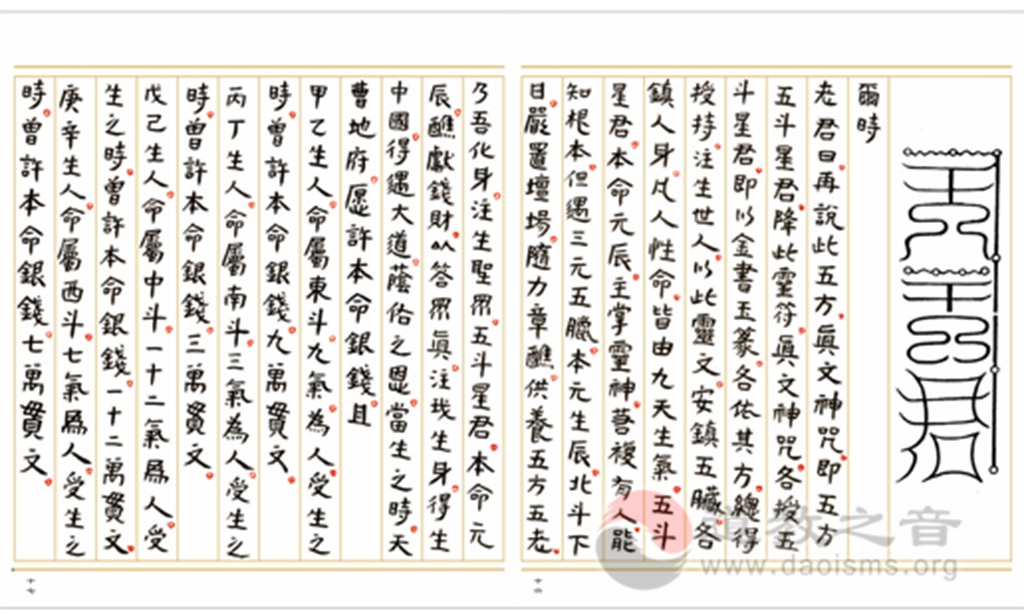 爾時
老君曰再說此五方眞文神咒即五方
五斗星君降此靈符眞文神咒各授五
斗星君即以金書玉篆各依其方總得
授持注生世人以此靈文安鎮五臟各
鎮人身凡人性命皆由九天生氣五斗
星君本命元辰主掌靈神善複有人能
知根本但遇三元五臘本元生辰北斗下
日嚴置壇場隨力章醮供養五方五老
十六
乃吾化身注生聖眾五斗星君本命元
辰醮獻錢財以答眾眞注我生身得生
中國得遇大道蔭佑之恩當生之時天
曹地府愿許本命銀錢且
甲乙生人命屬東斗九氣為人受生之
時曾許本命銀錢九萬貫文
丙丁生人命屬南斗三氣為人受生之
時曾許本命銀錢三萬貫文
戊己生人命屬中斗一十二氣爲人受
生之時曾許本命銀錢一十二萬貫文
庚辛生人命屬西斗七氣爲人受生之
時曾許本命銀錢七萬貫文
十七
道教之音
www.daoisms.org